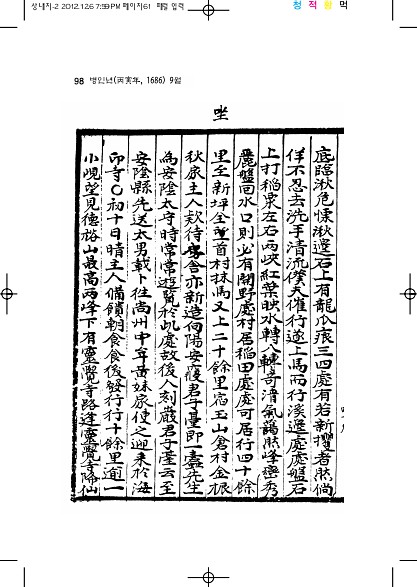 상내지-2 2012.12.6 7:59 PM 페이지61 패럴 입력
청 적 황 먹
98 병인년(丙寅年, 1686) 9월
坐
底臨湫危慄湫邊石上有龍爪痕三四處有若新攫者然倘
佯不忍去洗手清流僕夫催行遂上馬而行溪邊處處盤石
上打稻衆左右兩峽紅葉映水轉入轉奇淸氣藹然峰巒秀
麗盤回水口則必有開野處村居稻田處處可居行四十餘
里至新坪全萱首村秣馬又上二十餘里宿玉山倉村金振
秋家主人欵待舍亦新造向陽安宿君子臺卽一蠹先生
爲安陰太守時常常遊覽於此處故後人刻巖君子臺云至
安陰縣先送太男載卜往高州中年黃妹家使之迎來於海
印寺〇初十日晴主人備饋朝食食後發行行十餘里逾一
小峴望見德裕山最高兩峰下有靈覺寺路逢靈覺寺降仙